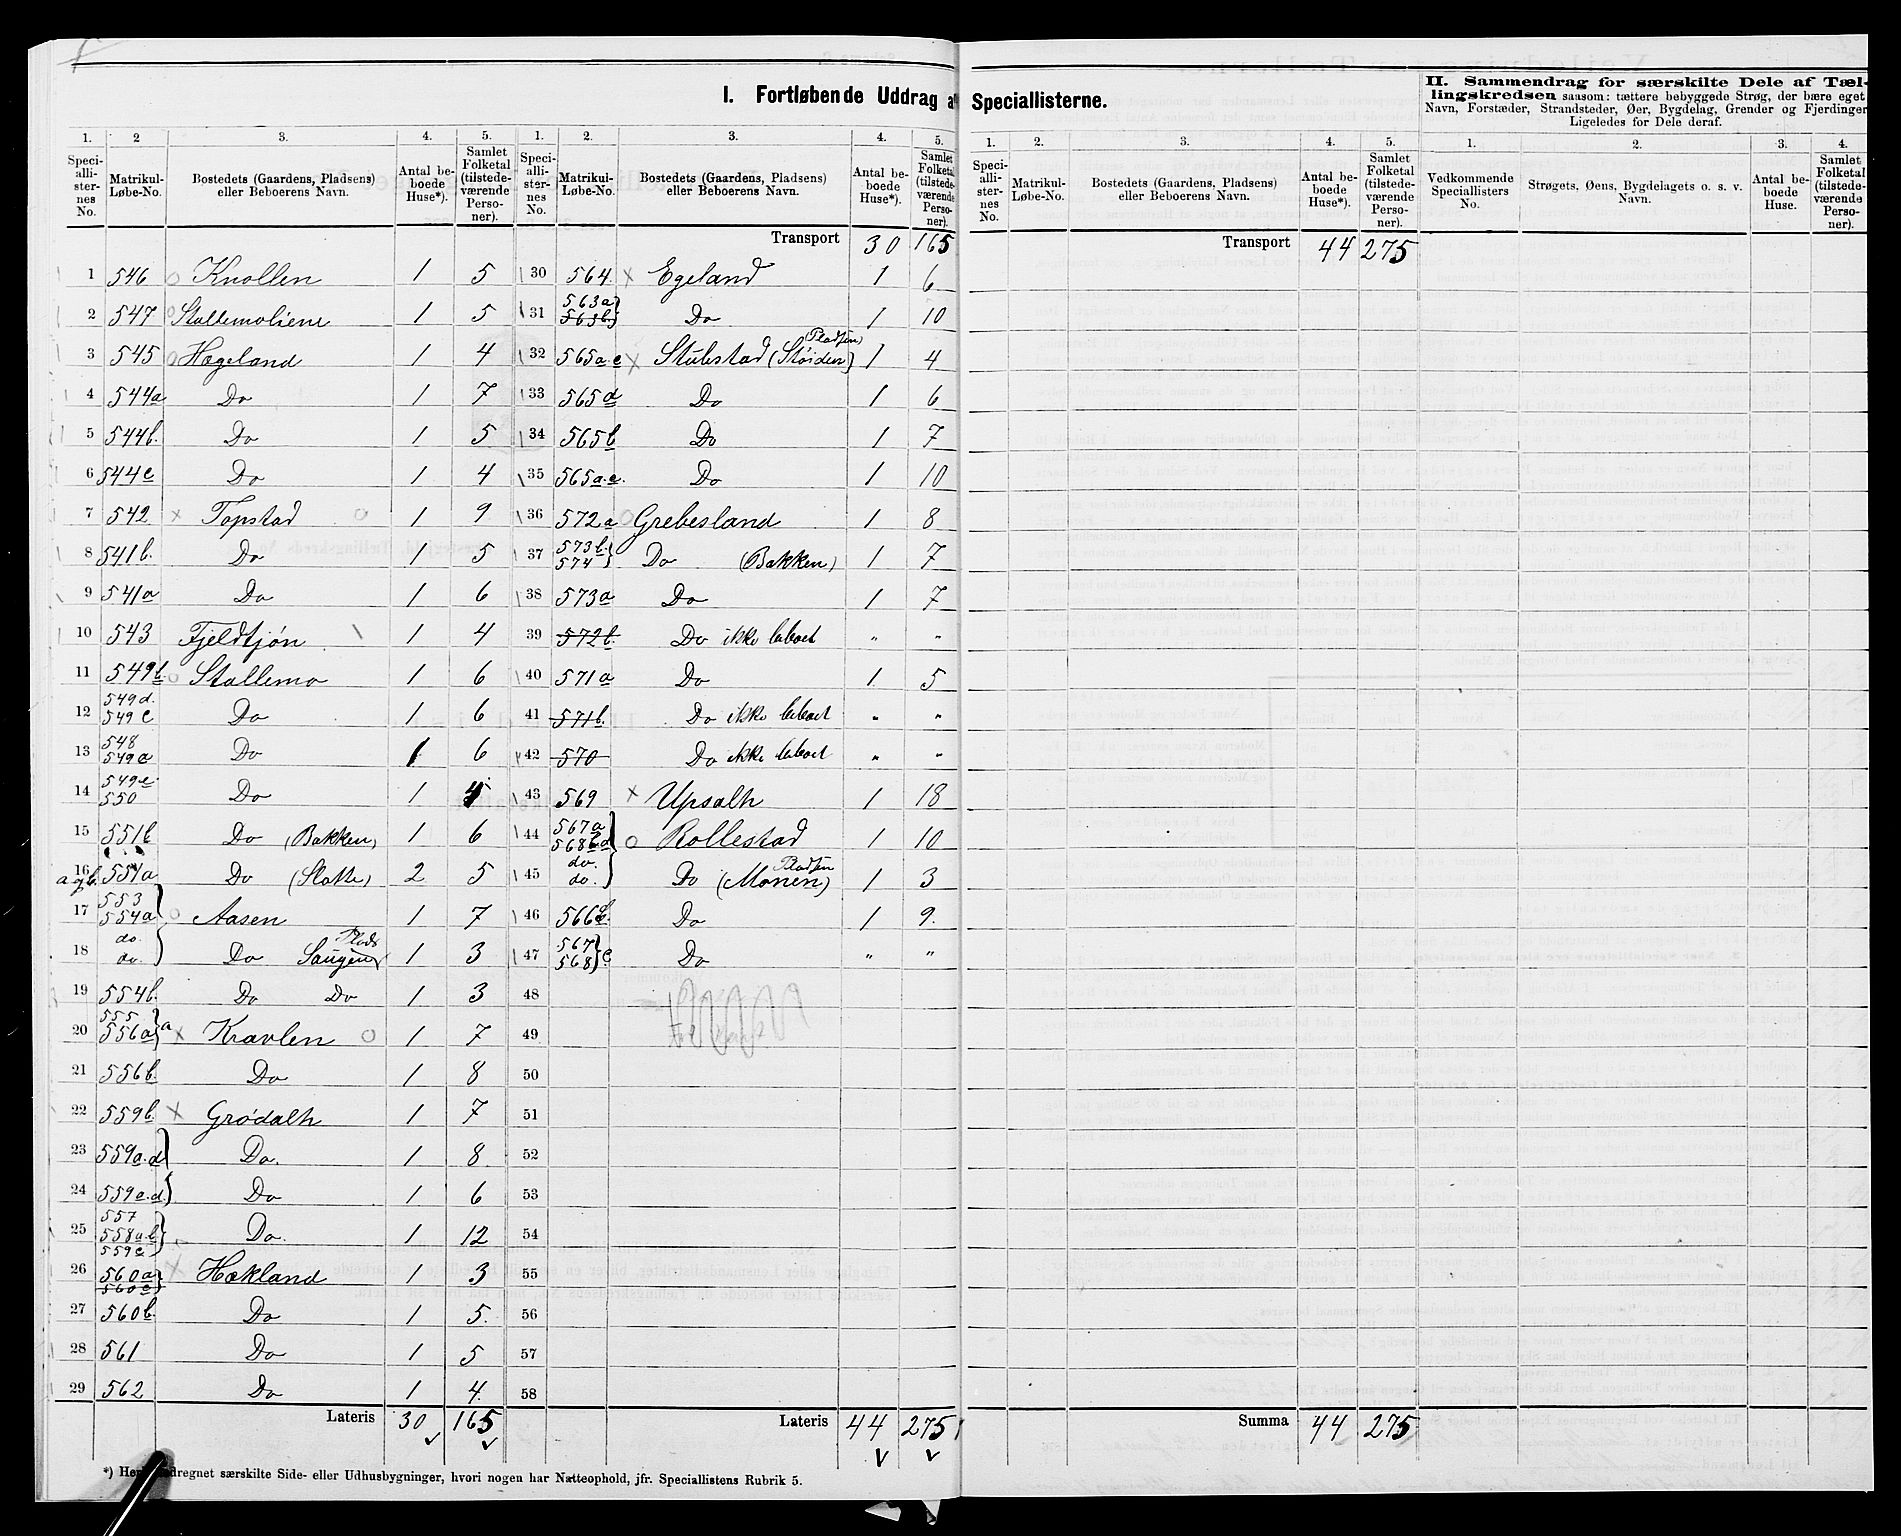 I. Fortløbende Uddrag af Speciallisterne.
II. Sammendrag for særskilte Dele af Tæl-
lingskredsen saasom: tættere bebyggede Strøg, der bære eget
Navn, Forstæder, Strandsteder, Øer, Bygdelag, Grender og Fjerdinger
Ligeledes for Dele deraf.
1. 2 3. 4. 5. 1. 2. 3. 4. 5.
Speciallisternes No. Matrikul-Løbe-No. Bostedets (Gaardens, Pladsens) eller Beboerens Navn. Antal beboede Huse*). Samlet Folketal (tilstedeværende Personer).
Speciallisternes No. Matrikul-Løbe-No. Bostedets (Gaardens, Pladsens) eller Beboerens Navn. Antal beboede Huse*). Samlet Folketal (tilstedeværende Personer).
1 546 Knollen 1 5
2 547 Stallemoliene 1 5
3 545 Hægeland 1 4
4 544a Do 1 7
5 544b. Do 1 5
6 544c Do 1 4
7 542 x Topstad o 1 9
8 541b. Do 1 5
9 541a Do 1 6
10 543 Fjeldtjøn 1 4
11 549b. o Stallemo 1 6
12 549d. 549c Do 1 6
13 548 549a Do 1 6
14 549e. 550 Do 1
15 551b Do (Bakken) 1 6
16 a og b. 551a Do (Slotte) 2 5
17 553 554a o Aasen 1 7
18 do. do. Do Saugen Plads 1 3
19 554b. Do Do 1 3
20 555 556a a x Kravlen o 1 7
21 556b. Do 1 8
22 559b. x Grødalh 1 7
23 559a.d Do. 1 8
24 559c.d. Do 1 6
25 557 558a.b 559e Do. 1 12
26 560a 560c x Hækland 1 3
27 560b. Do 1 5.
28 561 Do 1 5
29 562 Do 1 4.
Lateris 30 165
Transport 30 165
30 564. x Egeland 1 6
31 563a 563b. Do 1 10
32 565a.c x Stubstad (Støiden) Pladsen 1 4
33 565d Do 1 6
34 565b Do 1 7
35 565a.e. Do 1 10
36 572a o Grebesland 1 8
37 573b. 574 Do (Bakken) 1 7
38 573a Do 1 7
39 572b. Do ikke beboet " "
40 571a Do 1 5
41 571b. Do ikke beboet " "
42 570 Do ikke beboet " "
43 569 x Upsalh 1 18
44 567a 568b.d o Rollestad 1 10
45 do. do. Do (Monen) Pladsen 1 3
46 566 Do 1 9.
47 567 568 c Do " "
48
49
50
51
52
53
54
55
56
57
58
Lateris 44 275
*) Heri adregnet særskilte Side- eller Udhusbygninger, hvori nogen har Natteophold, jfr. Speciallistens Rubrik 5.
1. 2. 3. 4. 5. 1. 2. 3. 4.
Speciallisternes No. Matrikul-Løbe-No. Bostedets (Gaardens, Pladsens) eller Beboerens Navn. Antal beboede Huse*). Samlet Folketal (tilstedeværende Personer).
Vedkommende Speciallisters No. Strøgets, Øens, Bygdelagets o. s. v. Navn. Antal beboede Huse. Samlet Folketal (tilstedeværende Personer).
Transport 44 275
Summa 44 275